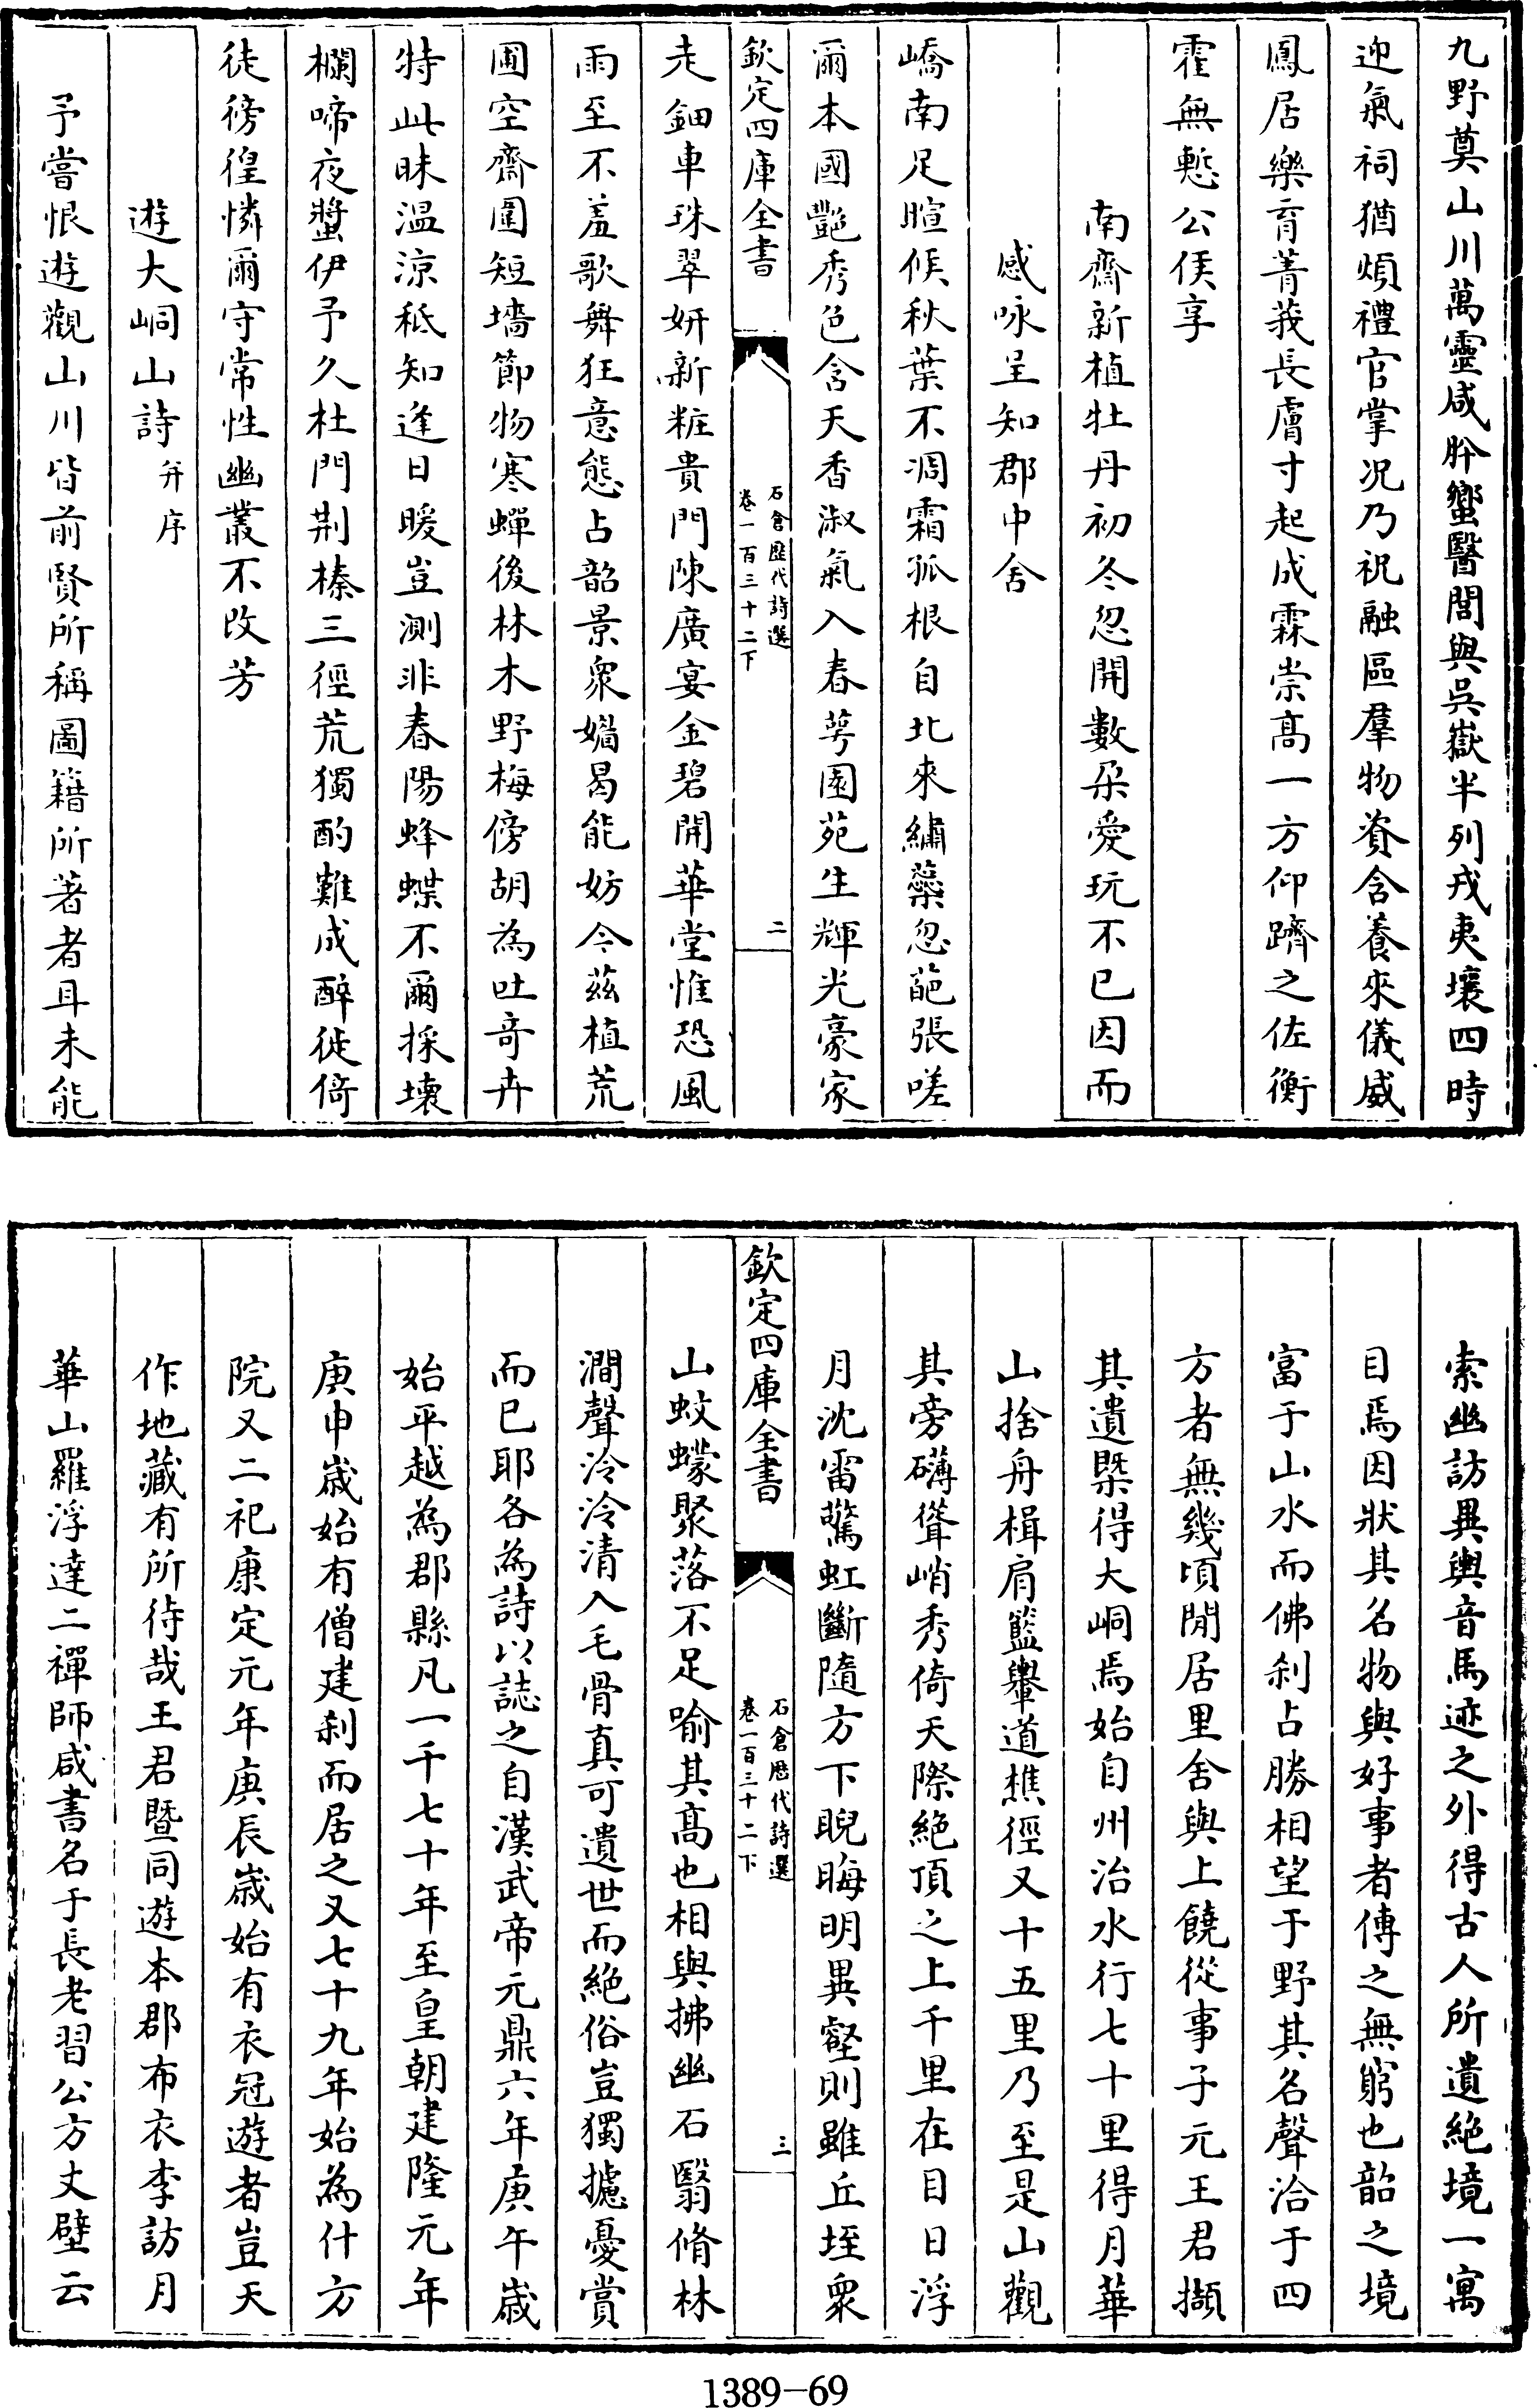 九野奠山川萬靈咸肸蠁醫閭與吳嶽半列戎夷壤四時
迎氣祠猶煩禮官掌况乃祝融區羣物資含養來儀威
鳳居樂育菁莪長膚寸起成霖崇高一方仰躋之佐衡
霍無慙公侯享
南齋新植牡丹初冬忽開數朶愛玩不已因而
感咏呈知郡中舍
嶠南足暄候秋葉不凋霜孤根自北來繡蘂忽葩張嗟
爾本國艶秀色含天香淑氣入春萼園苑生輝光豪家
欽定四庫全書
石倉歷代詩選
卷一百三十二下
二
走鈿車珠翠妍新粧貴門陳廣宴金碧開華堂惟恐風
雨至不羞歌舞狂意態占韶景衆媚曷能妨今茲植荒
圃空齋圍短墻節物寒蟬後林木野梅傍胡為吐竒卉
特此昧温涼秪知逢日暖豈測非春陽蜂蝶不爾採壊
欄啼夜螿伊予久杜門荆榛三徑荒獨酌難成醉徙倚
徒徬徨憐爾守常性幽叢不改芳
遊大峒山詩并序
予嘗恨遊觀山川皆前賢所稱圖籍所著者耳未能
索幽訪異輿音馬迹之外得古人所遺絶境一寓
目焉因狀其名物與好事者傳之無窮也韶之境
富于山水而佛刹占勝相望于野其名聲洽于四
方者無幾頃閒居里舍與上饒從事子元王君擷
其遺槩得大峒焉始自州治水行七十里得月華
山捨舟楫肩籃轝道樵徑又十五里乃至是山觀
其旁礴聳峭秀倚天際絶頂之上千里在目日浮
月沈雷驚虹斷隨方下睨晦明異壑則雖丘垤衆
欽定四庫全書
石倉歷代詩選
卷一百三十二下
三
山蚊蠓聚落不足喻其高也相與拂幽石翳脩林
澗聲泠泠清入毛骨真可遺世而絶俗豈獨攄憂賞
而已耶各為詩以誌之自漢武帝元鼎六年庚午歳
始平越為郡縣凡一千七十年至皇朝建隆元年
庚申歳始有僧建刹而居之又七十九年始為什方
院又二祀康定元年庚辰歳始有衣冠遊者豈天
作地藏有所待哉王君暨同遊本郡布衣李訪月
華山羅浮達二禪師咸書名于長老習公方丈壁云
1389—69